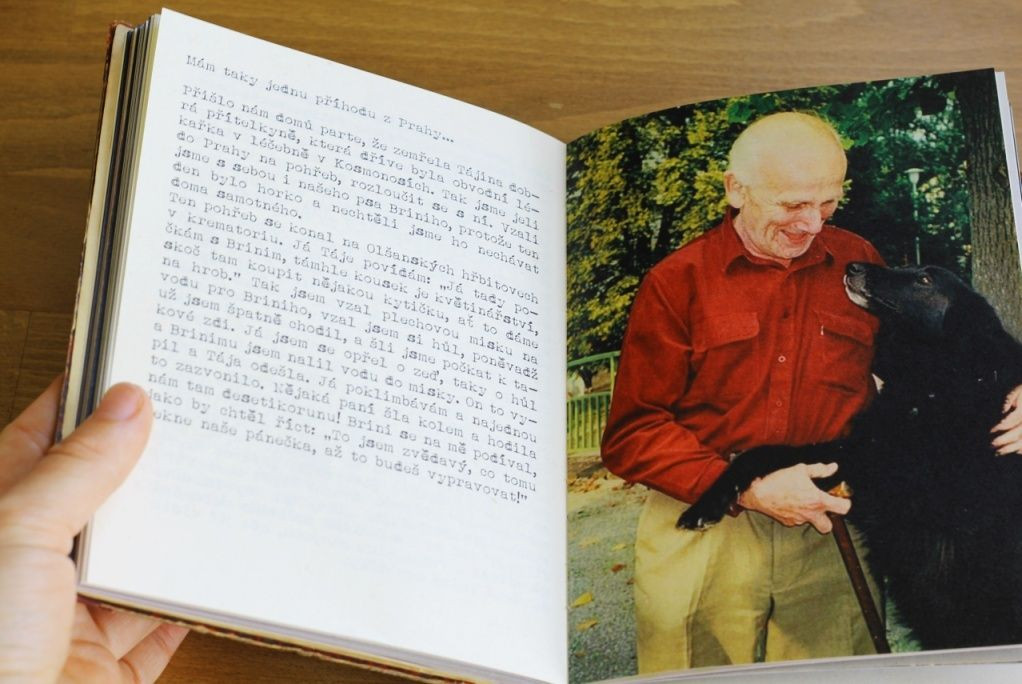 Mám taky jednu příhodu z Prahy...
Přišlo nám domů parte, že zemřela Tájina dob-
rá přítelkyně, která dříve byla obvodní lé-
kařka v léčebně v Kosmonosích. Tak jsme jeli
do Prahy na pohřeb, rozloučit se s ní. Vzali
jsme s sebou i našeho psa Briniho, protože ten
den bylo horko a nechtěli jsme ho nechávat
doma samotného.
Ten pohřeb se konal na Olšanských hřbitovech
v krematoriu. Já Táje povídám: „Já tady po-
čkám s Brinim, támhle kousek je květinářství,
skoč tam koupit nějakou kytičku, ať to dáme
na hrob." Tak jsem vzal plechovou misku na
vodu pro Briniho, vzal jsem si hůl, poněvadž
už jsem špatně chodil, a šli jsme počkat k ta-
kové zdi. Já jsem se opřel o zeď, taky o hůl
a Brinimu jsem nalil vodu do misky. On to vy-
pil a Tája odešla. Já poklimbávám a najednou
to zazvonilo. Nějaká paní šla kolem a hodila
nám tam desetikorunu! Brini se na mě podíval,
jako by chtěl říct: „To jsem zvědavý, co tomu
ekne naše pánečka, až to budeš vypravovat!"